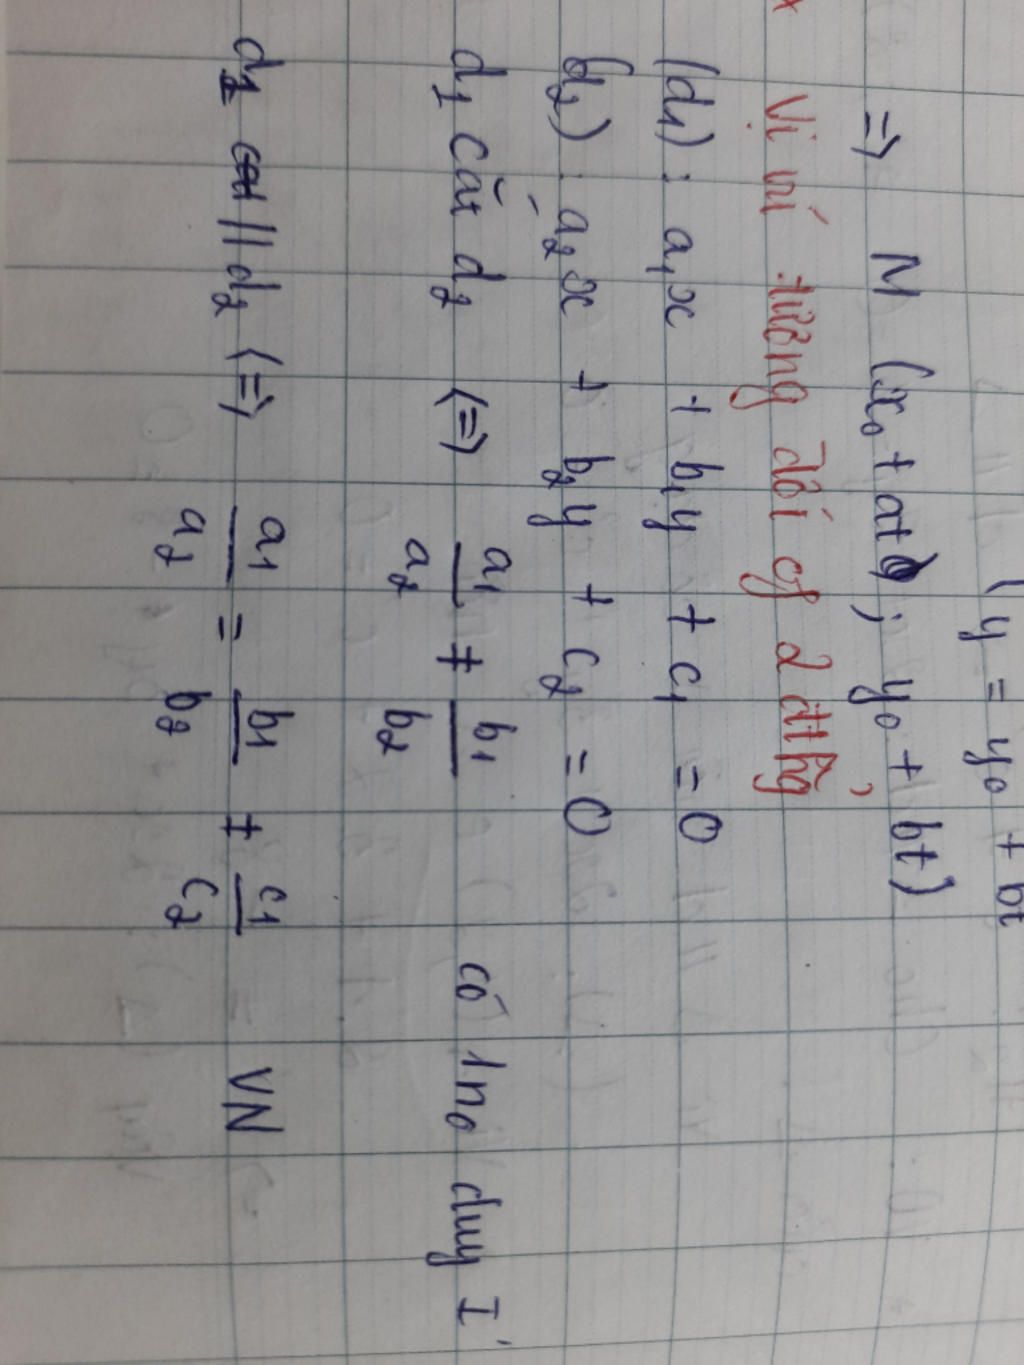 y = y₀ + bt
=> M (x₀ + at ; y₀ + bt)
Vị trí tương đối of 2 đthg
(d₁) : a₁x + b₁y + c₁ = 0
(d₂) : a₂x + b₂y + c₂ = 0
d₁ cắt d₂ <=> a₁/a₂ ≠ b₁/b₂ có 1n₀ duy I
d₁ // d₂ <=> a₁/a₂ = b₁/b₂ ≠ c₁/c₂ VN